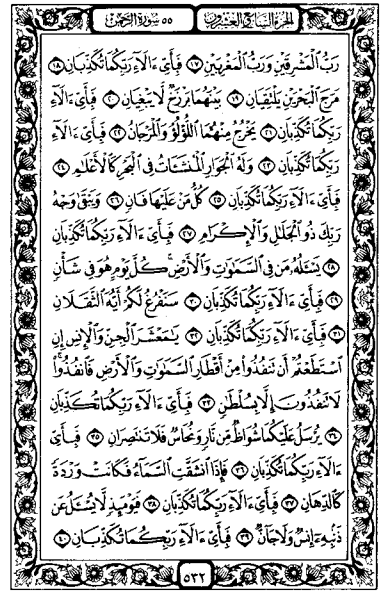 الجزء السابع والعشرون ٥٥ سورة الرحمن
رَبُّ ٱلْمَشْرِقَيْنِ وَرَبُّ ٱلْمَغْرِبَيْنِ ١٧ فَبِأَيِّ ءَالَآءِ رَبِّكُمَا تُكَذِّبَانِ ١٨
مَرَجَ ٱلْبَحْرَيْنِ يَلْتَقِيَانِ ١٩ بَيْنَهُمَا بَرْزَخٌ لَّا يَبْغِيَانِ ٢٠ فَبِأَيِّ ءَالَآءِ
رَبِّكُمَا تُكَذِّبَانِ ٢١ يَخْرُجُ مِنْهُمَا ٱللُّؤْلُؤُ وَٱلْمَرْجَانُ ٢٢ فَبِأَيِّ ءَالَآءِ
رَبِّكُمَا تُكَذِّبَانِ ٢٣ وَلَهُ ٱلْجَوَارِ ٱلْمُنشَـَٔاتُ فِى ٱلْبَحْرِ كَٱلْأَعْلَٰمِ ٢٤
فَبِأَيِّ ءَالَآءِ رَبِّكُمَا تُكَذِّبَانِ ٢٥ كُلُّ مَنْ عَلَيْهَا فَانٍ ٢٦ وَيَبْقَىٰ وَجْهُ
رَبِّكَ ذُو ٱلْجَلَٰلِ وَٱلْإِكْرَامِ ٢٧ فَبِأَيِّ ءَالَآءِ رَبِّكُمَا تُكَذِّبَانِ
٢٨ يَسْـَٔلُهُۥ مَن فِى ٱلسَّمَٰوَٰتِ وَٱلْأَرْضِ ۚ كُلَّ يَوْمٍ هُوَ فِى شَأْنٍ
٢٩ فَبِأَيِّ ءَالَآءِ رَبِّكُمَا تُكَذِّبَانِ ٣٠ سَنَفْرُغُ لَكُمْ أَيُّهَ ٱلثَّقَلَانِ
٣١ فَبِأَيِّ ءَالَآءِ رَبِّكُمَا تُكَذِّبَانِ ٣٢ يَٰمَعْشَرَ ٱلْجِنِّ وَٱلْإِنسِ إِنِ
ٱسْتَطَعْتُمْ أَن تَنفُذُوا۟ مِنْ أَقْطَارِ ٱلسَّمَٰوَٰتِ وَٱلْأَرْضِ فَٱنفُذُوا۟ ۚ
لَا تَنفُذُونَ إِلَّا بِسُلْطَٰنٍ ٣٣ فَبِأَيِّ ءَالَآءِ رَبِّكُمَا تُكَذِّبَانِ
٣٤ يُرْسَلُ عَلَيْكُمَا شُوَاظٌ مِّن نَّارٍ وَنُحَاسٌ فَلَا تَنتَصِرَانِ ٣٥ فَبِأَيِّ
ءَالَآءِ رَبِّكُمَا تُكَذِّبَانِ ٣٦ فَإِذَا ٱنشَقَّتِ ٱلسَّمَآءُ فَكَانَتْ وَرْدَةً
كَٱلدِّهَانِ ٣٧ فَبِأَيِّ ءَالَآءِ رَبِّكُمَا تُكَذِّبَانِ ٣٨ فَيَوْمَئِذٍ لَّا يُسْـَٔلُ عَن
ذَنۢبِهِۦٓ إِنسٌ وَلَا جَآنٌّ ٣٩ فَبِأَيِّ ءَالَآءِ رَبِّكُمَا تُكَذِّبَانِ ٤٠
٥٣٢